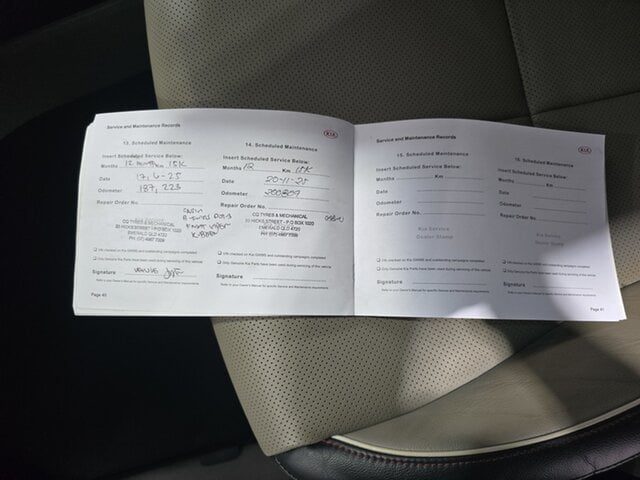 Service and Maintenance Records
KIA
13. Scheduled Maintenance
Insert Scheduled Service Below:
Months 12 Km 15K
Date 17-6-25
Odometer 187,223
Repair Order No.
CQ TYRES & MECHANICAL
EMERALD QLD 4720
☐ I/We checked on the GWMS and outstanding campaigns completed
☐ Only Genuine Kia Parts have been used during servicing of this vehicle
Signature
Refer to your Owner's Manual for specific Service and Maintenance requirements
Page 40
14. Scheduled Maintenance
Insert Scheduled Service Below:
Months 12 Km 15K
Date 20-11-25
Odometer
Repair Order No.
CQ TYRES & MECHANICAL
EMERALD QLD 4720
☐ I/We checked on the GWMS and outstanding campaigns completed
☐ Only Genuine Kia Parts have been used during servicing of this vehicle
Signature
Refer to your Owner's Manual for specific Service and Maintenance requirements
Service and Maintenance Records
KIA
15. Scheduled Maintenance
Insert Scheduled Service Below:
Months Km
Date
Odometer
Repair Order No.
Kia Service
Dealer Stamp
☐ I/We checked on the GWMS and outstanding campaigns completed
☐ Only Genuine Kia Parts have been used during servicing of this vehicle
Signature
Refer to your Owner's Manual for specific Service and Maintenance requirements
16. Scheduled Maintenance
Insert Scheduled Service Below:
Months Km
Date
Odometer
Repair Order No.
Kia Service
Dealer Stamp
☐ I/We checked on the GWMS and outstanding campaigns completed
☐ Only Genuine Kia Parts have been used during servicing of this vehicle
Signature
Refer to your Owner's Manual for specific Service and Maintenance requirements
Page 41